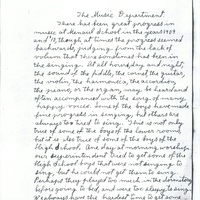 The Music Department
There has been great progress in
music at Menaul School in the years 1909
and '10, though at times the progress seemed
backwards, judging from the lack of
volume that there sometimes has been in
the singing. At all hours, day and night,
the sound of the fiddle, the cornet, the guitar
the violin, the harmonica, the accordion,
the piano, or the organ, may be heard and
often accompanied with the singing of many
happy voices. Some of the boys have made
fine progress in singing, but others are
always too tired to sing. This is not only
true of some of the boys of the lower room,
but it is also true of some of the boys of the
High School. One day at morning worship,
our superintendent tried to get some of the
High School boys that were not singing to
sing, but he could not get them to sing.
Perhaps they played too much in the dormitory
before going to bed, and were too sleepy to sing.
We always have the hardest time to get some